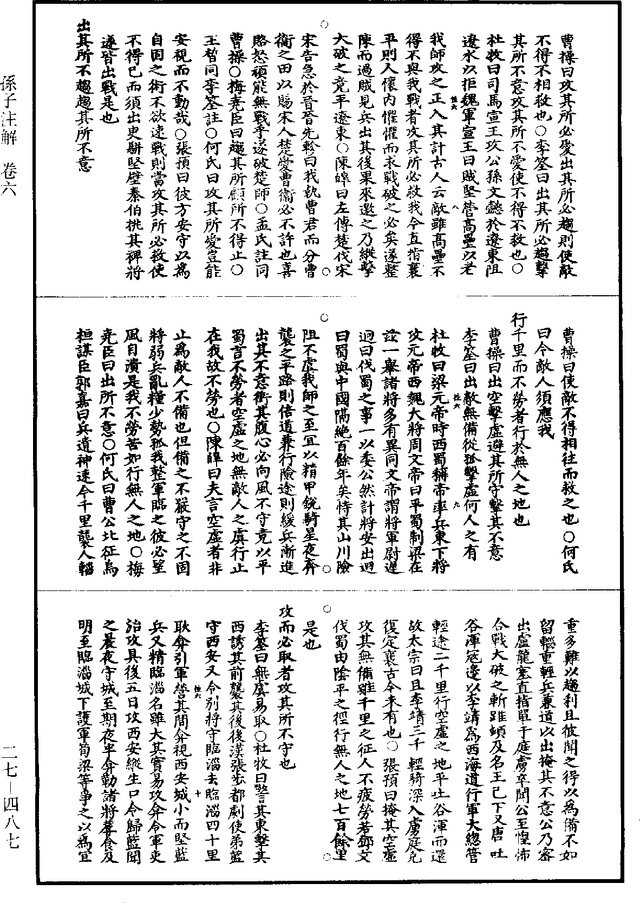 曹操曰攻其所必愛出其所必趨則使敵
不得不相救也○李筌曰出其所必趨擊
其所不意攻其所不愛使不得不救也○
杜牧曰司馬宣王攻公孫文懿於遼東阻
遼水以拒魏軍宣王曰賊堅營高壘以老
我師攻之正入其計古人云敵雖高壘不
得不與我戰者攻其所必救我今直指襄
平則人懷內懼懼而求戰破之必矣遂整
陳而過賊見兵出其後果來邀之乃縱擊
大破之竟平遼東○陳皥曰左傳楚伐宋
宋告急於晉晉先軫曰我執曹君而分曹
衛之田以賜宋人楚愛曹衛必不許也喜
賂怒頑能無戰乎遂破楚師○孟氏註同
曹操○梅堯臣曰趨其所顧所不得止○
王晳同李筌註○何氏曰攻其所愛豈能
安視而不動哉○張預曰彼方安守以為
自固之術不欲速戰則當攻其所必救使
不得已而須出史駢堅壁秦伯挑其裨將
遂皆出戰是也
出其所不趨趨其所不意
曹操曰使敵不得相往而救之也○何氏
曰令敵人須應我
行千里而不勞者行於無人之地也
曹操曰出空擊虛避其所守擊其不意
李筌曰出敵無備從孤擊虛何人之有
杜牧曰梁元帝時西蜀稱帝率兵東下將
攻元帝西魏大將周文帝曰平蜀制梁在
茲一舉諸將多有異同文帝謂將軍尉遲
迥曰伐蜀之事一以委公然計將安出迥
曰蜀與中國隔絕百餘年矣恃其山川險
阻不虞我師之至宜以精甲銳騎星夜奔
襲之平路則倍道兼行險途則緩兵漸進
出其不意衝其腹心必向風不守竟以平
蜀言不勞者空虛之地無敵人之虞行止
在我故不勞也○陳皥曰夫言空虛者非
止為敵人不備也但備之不嚴守之不固
將弱兵亂糧少勢孤我整軍臨之彼必望
風自潰是我不勞苦如行無人之地○梅
堯臣曰出所不意○何氏曰曹公北征烏
桓謀臣郭嘉曰兵道神速今千里襲人輜
重多難以趨利且彼聞之得以為備不如
留輜重輕兵兼道以出掩其不意公乃密
出盧龍塞直指單于庭虜卒聞公至惶怖
合戰大破之斬蹋頓及名王已下又唐吐
谷渾寇邊以李靖為西海道行軍大總管
輕途二千里行空虛之地平吐谷渾而還
故太宗曰且李靖三千輕騎深入虜庭克
復定襄古今未有也○張預曰掩其空虛
攻其無備雖千里之征人不疲勞若鄧艾
伐蜀由陰平之徑行無人之地七百餘里
是也
攻而必取者攻其所不守也
李筌曰無虞易取○杜牧曰警其東擊其
西誘其前襲其後後漢張步都劇使弟藍
守西安又令別將守臨淄去臨淄四十里
耿弇引軍營其間弇視西安城小而堅藍
兵又精臨淄名雖大其實易攻弇令軍吏
治攻具後五日攻西安縱生口令歸藍聞
之晨夜守城至期夜半弇勒諸將蓐食及
明至臨淄城下護軍荀梁等爭之以為宜
孫子注解 卷六
二七－四八七